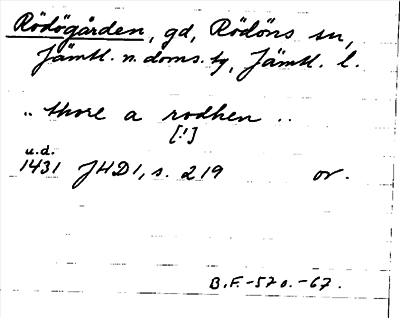 Rödögården, gd, Rödöns sn,
Jämtl. n. doms. tg, Jämtl. l.
.. thore a rodhen ..
[!]
u.d.
1431 JHD 1, s. 219 or.
B.F.-57 o.-67.